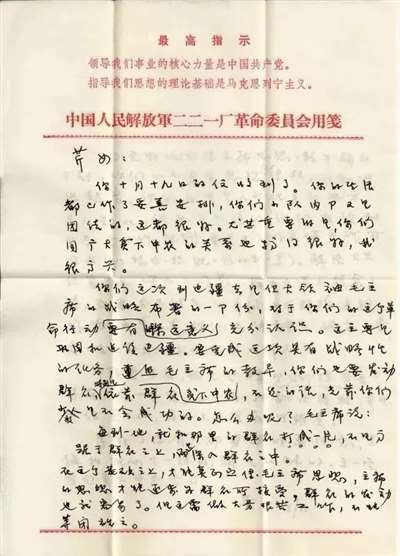 最高指示
领导我们事业的核心力量是中国共产党。
指导我们思想的理论基础是马克思列宁主义。
中国人民解放軍二二一厂革命委員会用箋
芹女：
你十月十九日的信收到了。你的生活
都已作了妥善安排，你们小队内又是
团结的，这都很好。尤其重要的是，你们
同广大贫下中农的关系也搞得很好，我
很高兴。
你们这次到边疆去是伟大领袖毛主
席的战略布署的一部份，对于你们的这个革
命行动要有充分认识。这主要是
巩固和建设边疆。要完成这项具有战略性
的任务，遵照毛主席的教导，你们也要发动
群众，依靠群众贫下中农，不然的话，光靠你们
是不会成功的。怎么办呢？毛主席说：
每到一地，就和那里的群众打成一片，不是高
踞于群众之上，而是深入群众之中。
在这个基础之上，才能真的宣传毛主席思想，主席
的思想才能逐步为群众所接受，群众的发动
也就容易了。但这要做大量艰苦工作，不能
草固